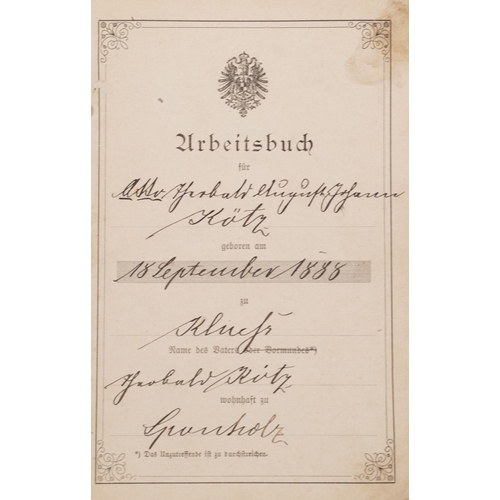 Arbeitsbuch
für
Otto Theobald August Johann
Kötz
geboren am
18 September 1888
zu
Name des Vaters (oder Vormundes*)
Theobald Kötz
wohnhaft zu
Sponholz
*) Das Unzutreffende ist zu durchstreichen.